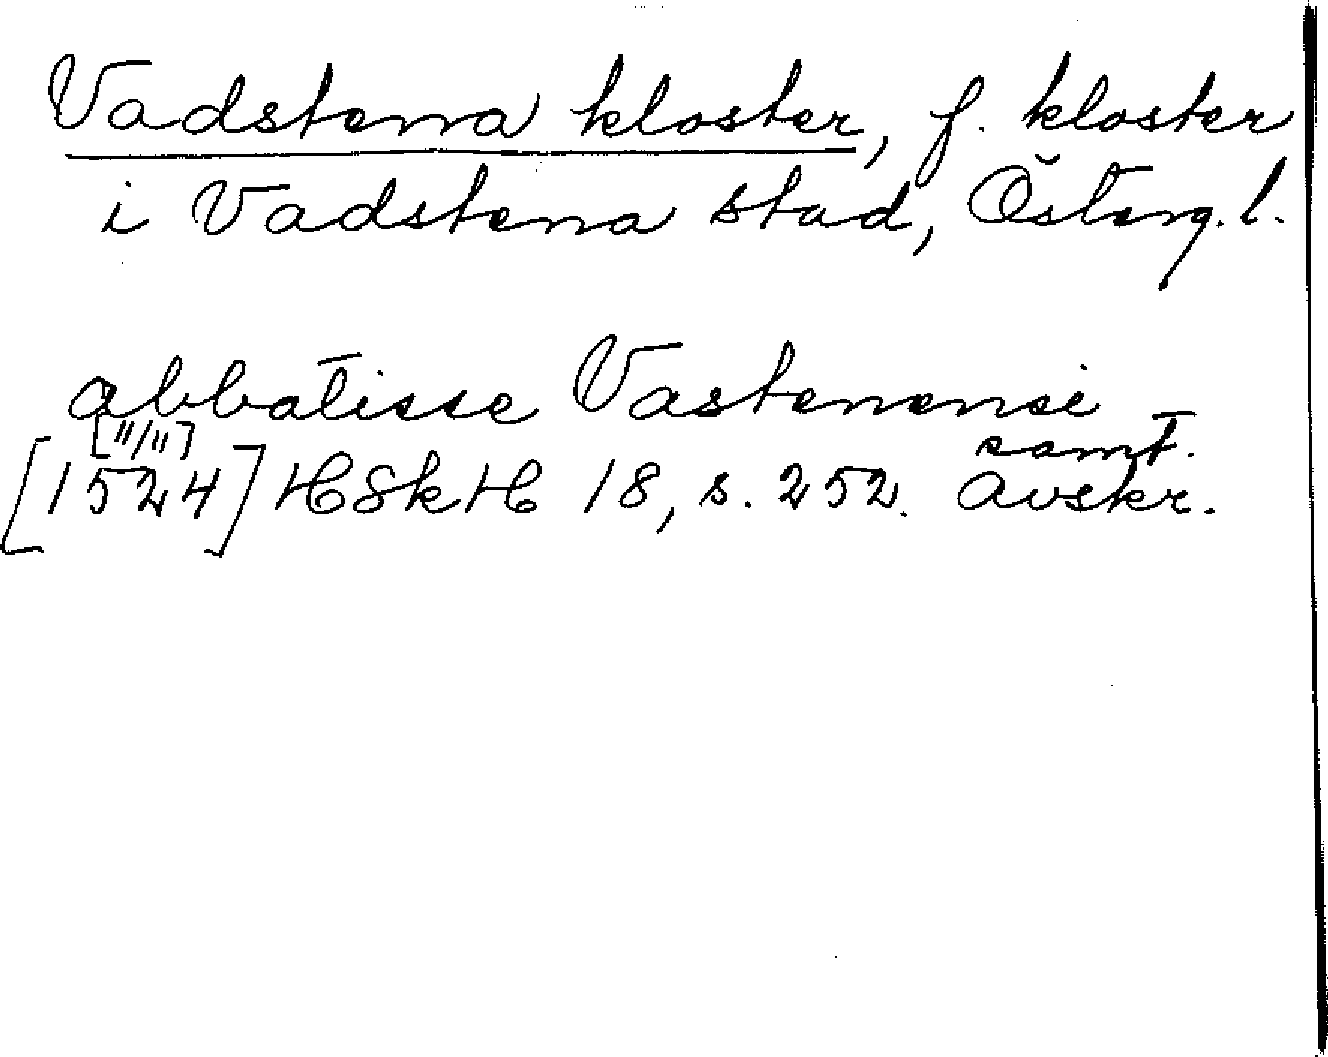 Vadstena kloster, f. kloster
i Vadstena stad, Österg. l.
abbatisse Vastenensi
[11/11] samt.
[1524] HSkH 18, s. 252. avskr.